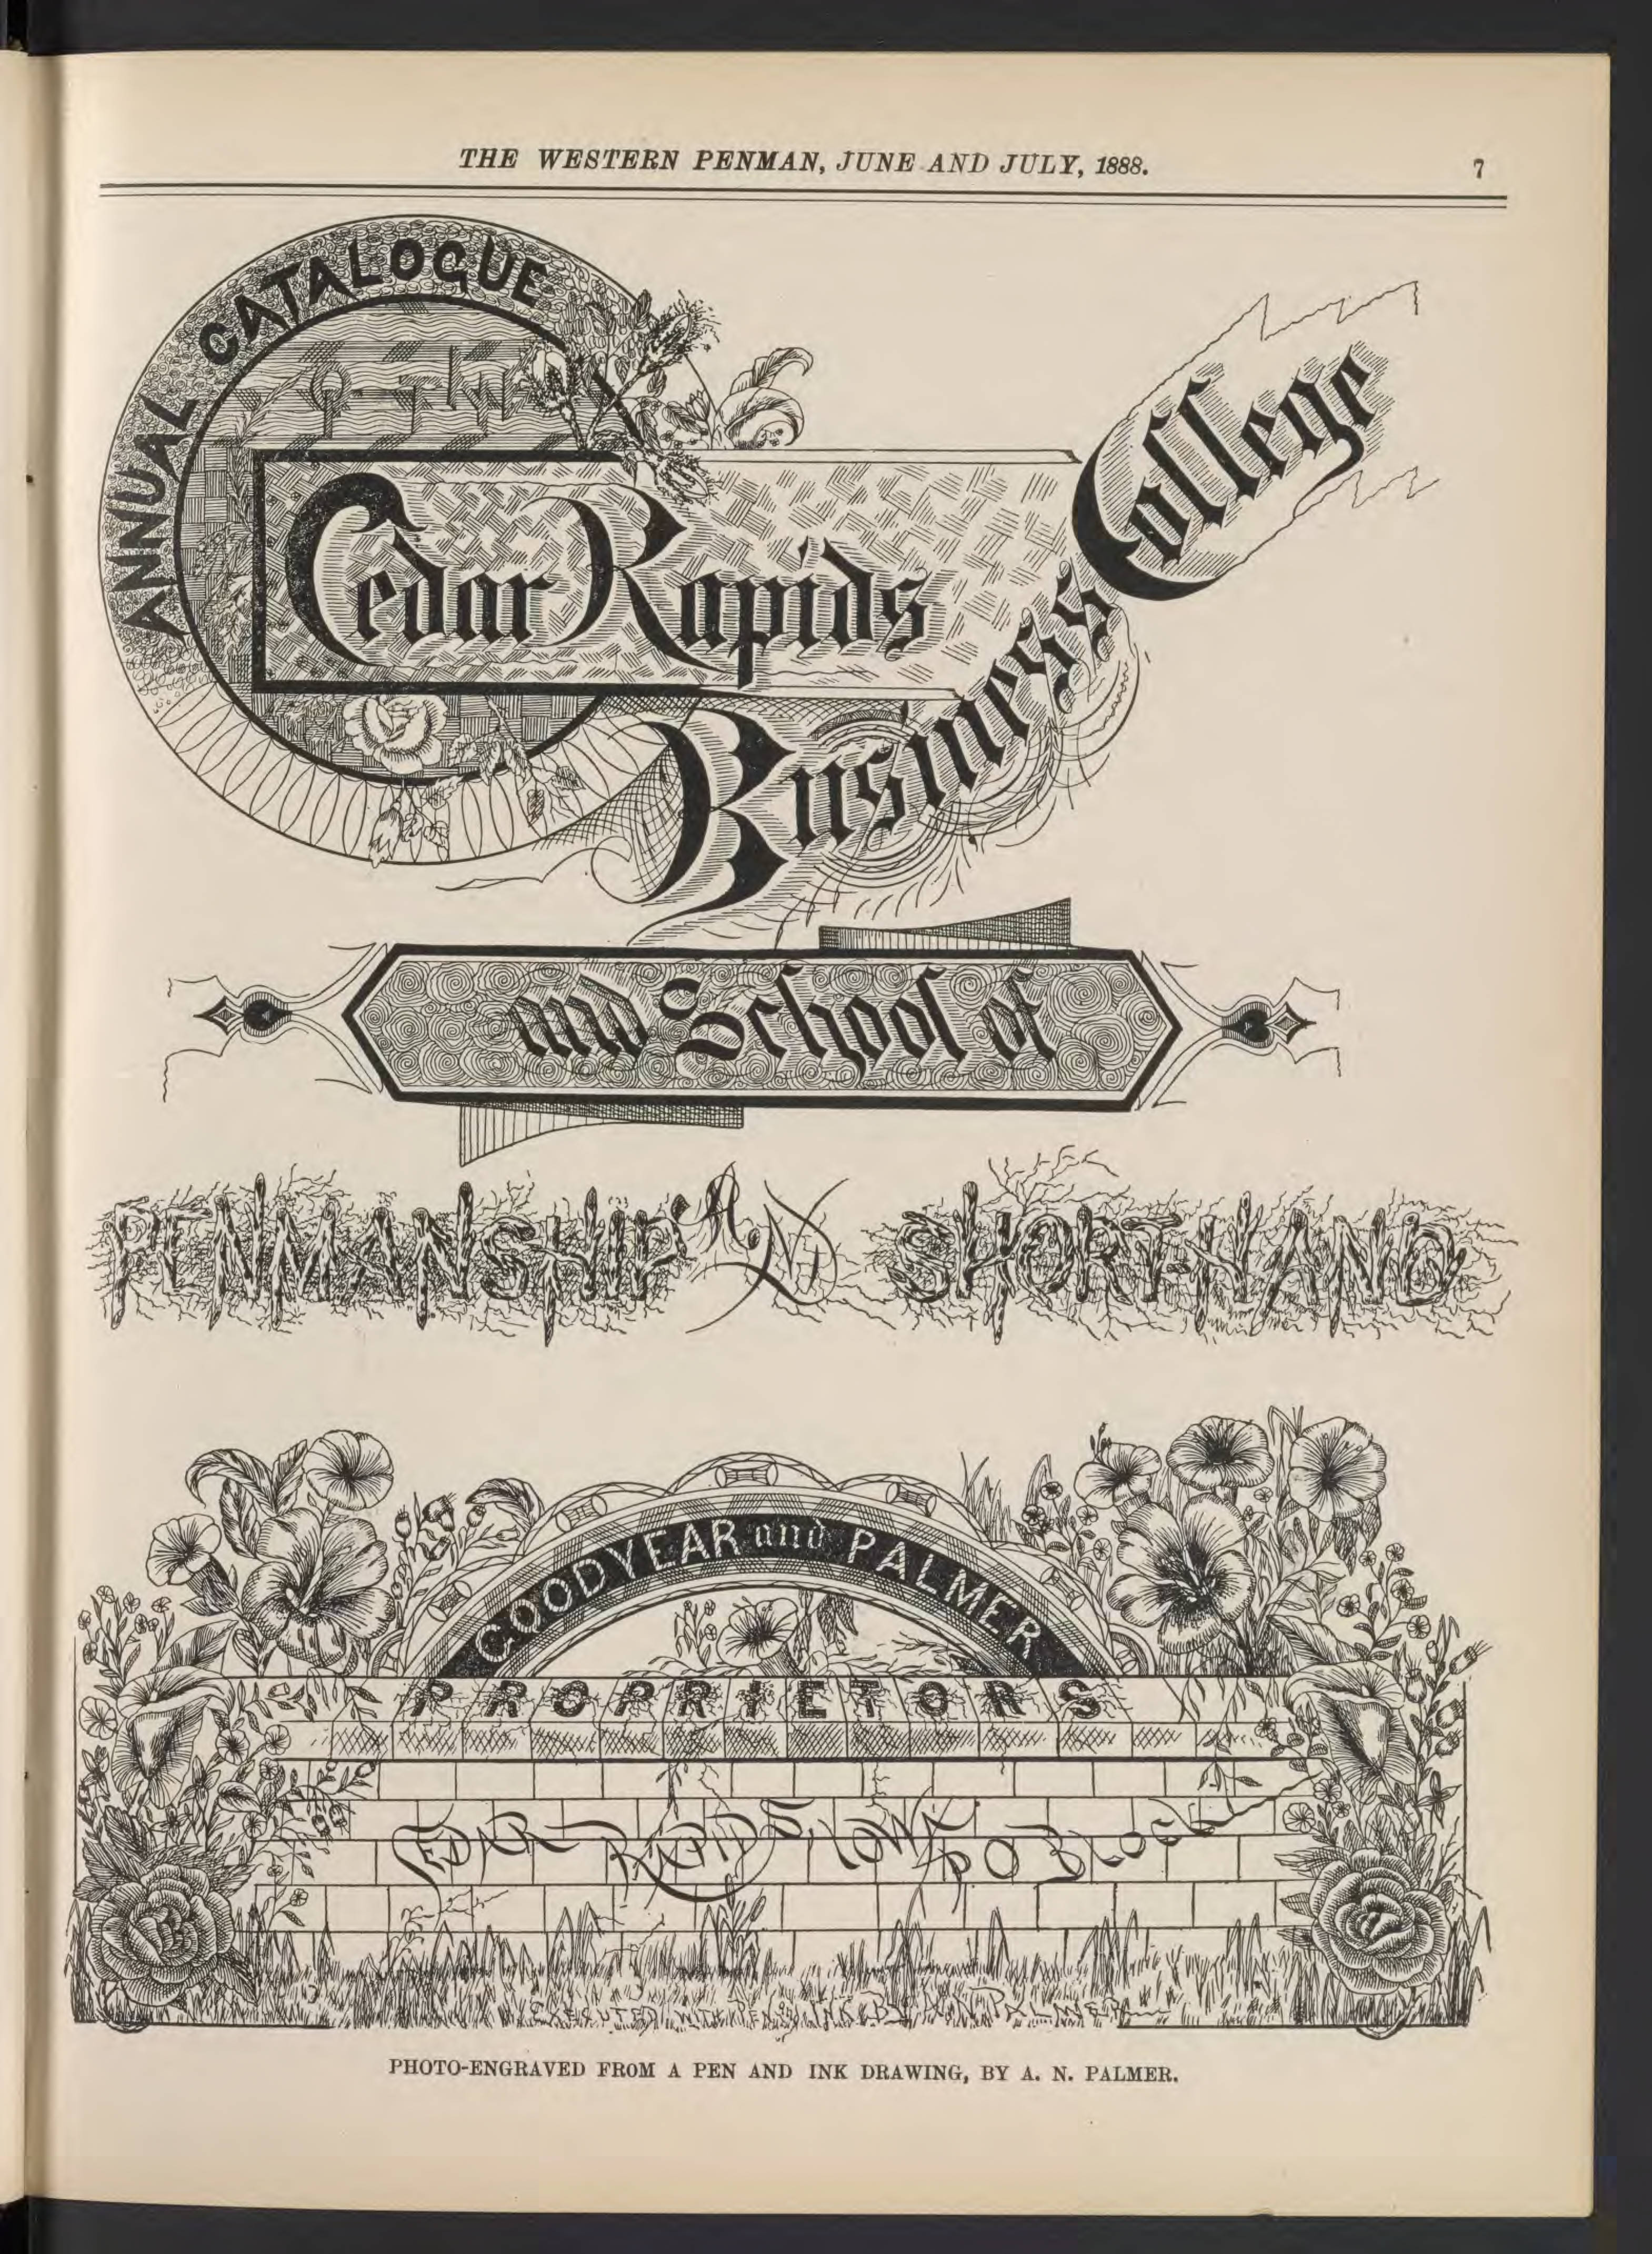 THE WESTERN PENMAN, JUNE AND JULY, 1888.
7
ANNUAL CATALOGUE
Cedar Rapids
Business
College
and School of
PENMANSHIP AND SHORT-HAND
GOODYEAR and PALMER
PROPRIETORS
CEDAR RAPIDS, IOWA P O BLOCK
EXECUTED WITH PEN & INK BY A.N. PALMER
PHOTO-ENGRAVED FROM A PEN AND INK DRAWING, BY A. N. PALMER.